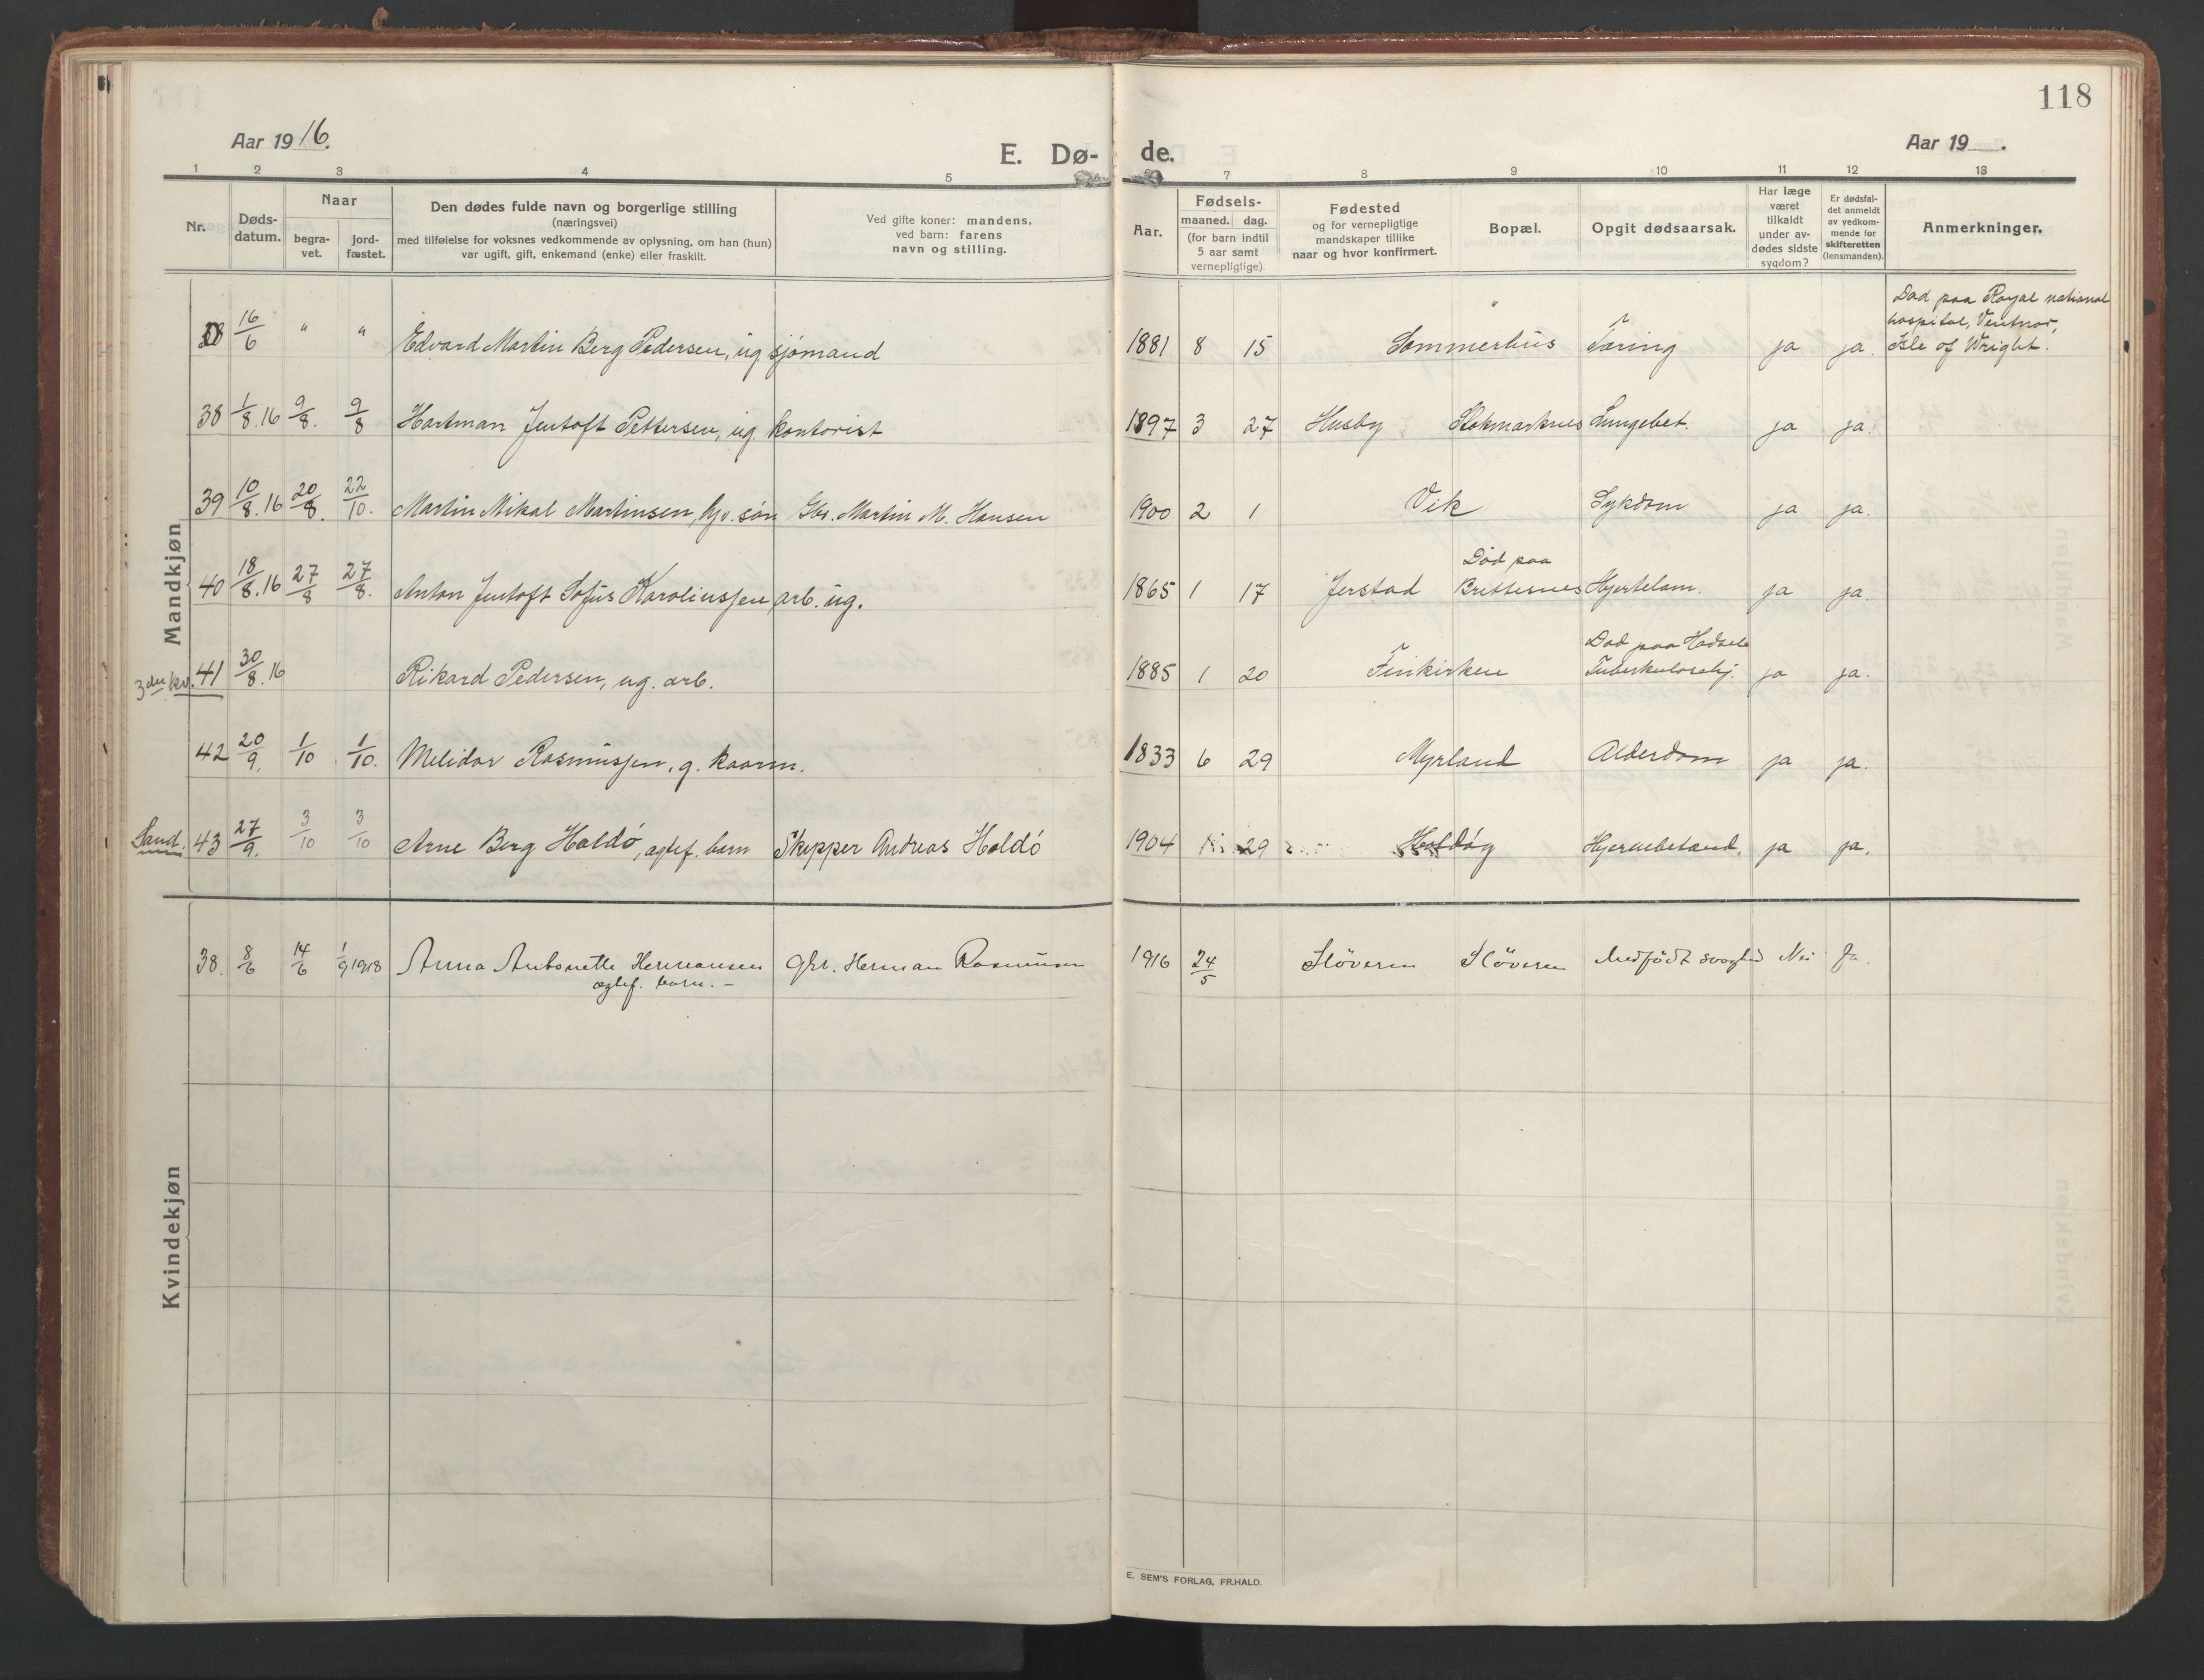 118
Aar 1916.
E. Dø- de.
Aar 19 .
1 2 3 4 5 7 8 9 10 11 12 13
Nr.
Døds-
datum.
Naar
begra-
vet.
jord-
fæstet.
Den dødes fulde navn og borgerlige stilling
(næringsvei)
med tilføielse for voksnes vedkommende av oplysning, om han (hun)
var ugift, gift, enkemand (enke) eller fraskilt.
Ved gifte koner: mandens,
ved barn: farens
navn og stilling.
Aar.
Fødsels-
maaned. dag.
(for barn indtil
5 aar samt
vernepligtige)
Fødested
og for vernepligtige
mandskaper tillike
naar og hvor konfirmert.
Bopæl.
Opgit dødsaarsak.
Har læge
været
tilkaldt
under av-
dødes sidste
sygdom?
Er dødsfal-
det anmeldt
av vedkom-
mende for
skifteretten
(lensmanden).
Anmerkninger.
Mandkjøn
16/6 " " Edvard Martin Berg Pedersen, ug sjømand 1881 8 15 Sommerhus Tæring ja ja. Død paa Royal national
hospital, Ventnor,
Isle of Wright.
38 1/8.16 9/8. 9/8 Hartman Jentoft Pettersen, ug kontorist 1897 3 27 Husby Stokmarknes Lungebet. ja ja.
39 10/8.16 20/8. 22/10. Martin Nikal Martinsen, hjv. søn Gbr. Martin M. Hansen 1900 2 1 Vik Sykdom ja ja.
40 18/8.16 27/8 27/8. Anton Jentoft Sofus Karolinssen, arb. ug. 1865 1 17 Jerstad Død paa
Brettesnes Hjertelam. ja ja.
3die kv. 41 30/8.16 Rikard Pedersen, ug. arb. 1885 1 20 Finkirken Død paa Hadsel
Tuberkulosehj. ja ja.
42 20/9. 1/10 1/10. Melidor Rasmussen, g. kaarm. 1833 6 29 Myrland Alderdom ja ja.
Sand. 43 27/9. 3/10 3/10 Arne Berg Holdø, egtef. barn Skipper Andreas Holdø 1904 29 Holdøy Hjernebetænd. ja ja.
Kvindekjøn
38. 8/6 14/6 1/9 1918 Anna Antonette Hermansen
egtef. barn. – Gbr. Herman Rasmussen 1916 24/5 Sløveren Sløveren Medfødt svaghed Nei Ja.
E. SEM'S FORLAG, FR.HALD.